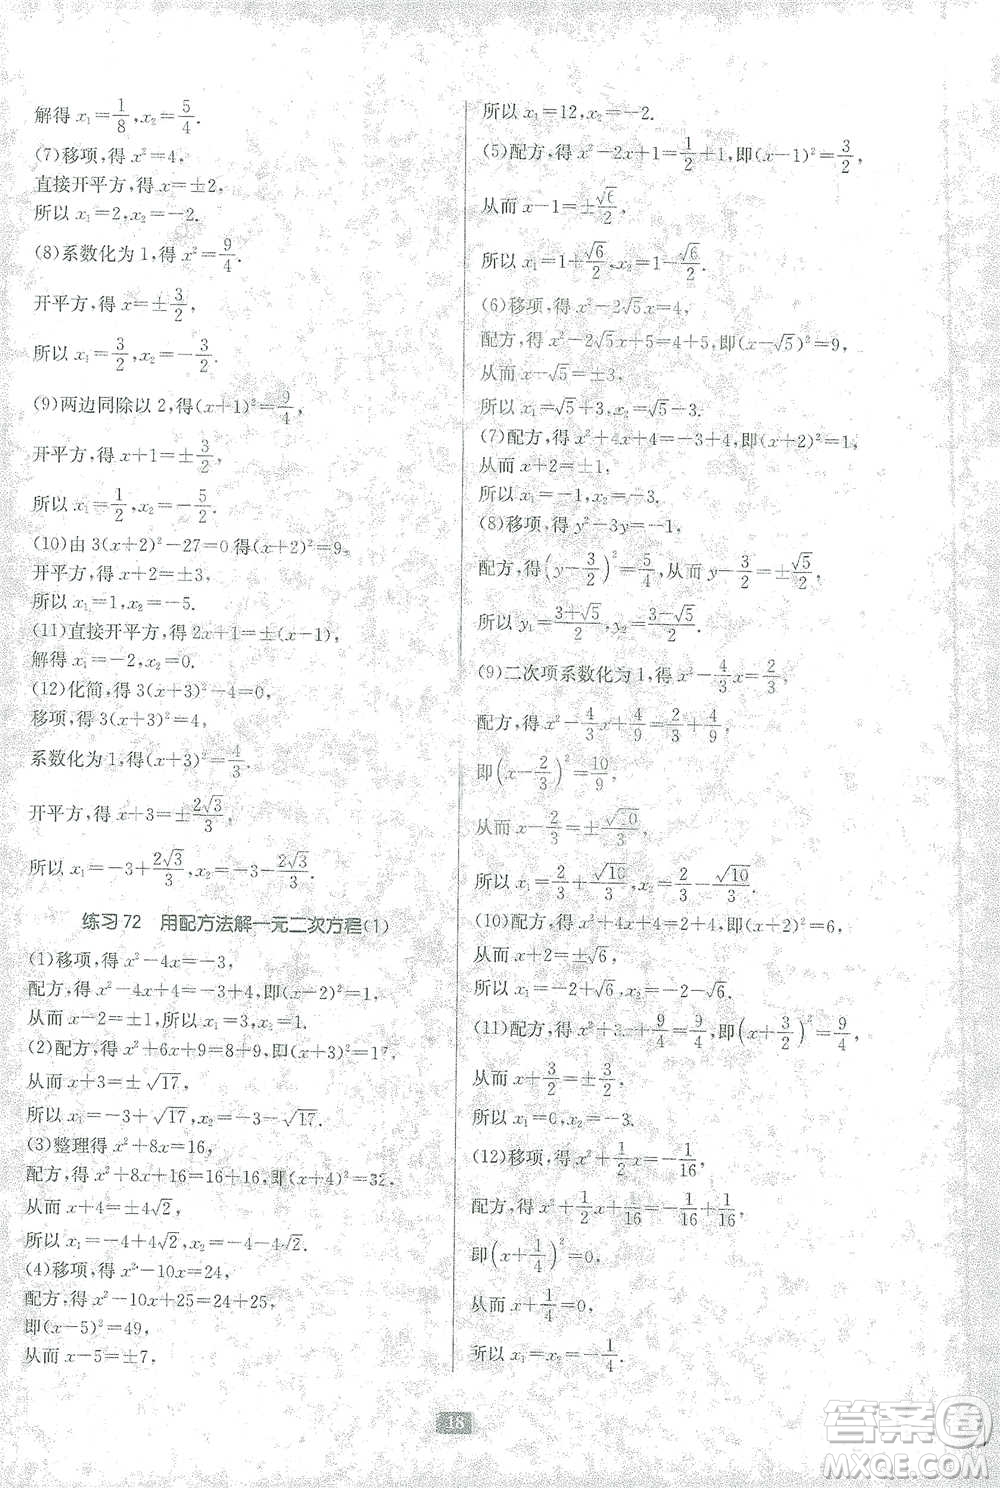 解得 x₁=1/8, x₂=5/4.
(7)移项,得 x²=4,
直接开平方,得 x=±2,
所以 x₁=2, x₂=-2.
(8)系数化为 1,得 x²=9/4.
开平方,得 x=±3/2,
所以 x₁=3/2, x₂=-3/2.
(9)两边同除以 2,得(x+1)²=9/4,
开平方,得 x+1=±3/2,
所以 x₁=1/2, x₂=-5/2.
(10)由 3(x+2)²-27=0 得(x+2)²=9,
开平方,得 x+2=±3,
所以 x₁=1, x₂=-5.
(11)直接开平方,得 2x+1=±(x-1),
解得 x₁=-2, x₂=0.
(12)化简,得 3(x+3)²-4=0,
移项,得 3(x+3)²=4,
系数化为 1,得(x+3)²=4/3.
开平方,得 x+3=±2√3/3,
所以 x₁=-3+2√3/3, x₂=-3-2√3/3.
练习 72 用配方法解一元二次方程(1)
(1)移项,得 x²-4x=-3,
配方,得 x²-4x+4=-3+4,即(x-2)²=1,
从而 x-2=±1,所以 x₁=3, x₂=1.
(2)配方,得 x²+6x+9=8+9,即(x+3)²=17,
从而 x+3=±√17,
所以 x₁=-3+√17, x₂=-3-√17.
(3)整理得 x²+8x=16,
配方,得 x²+8x+16=16+16,即(x+4)²=32,
从而 x+4=±4√2,
所以 x₁=-4+4√2, x₂=-4-4√2.
(4)移项,得 x²-10x=24,
配方,得 x²-10x+25=24+25,
即(x-5)²=49,
从而 x-5=±7,
所以 x₁=12, x₂=-2.
(5)配方,得 x²-2x+1=1/2+1,即(x-1)²=3/2,
从而 x-1=±√6/2,
所以 x₁=1+√6/2, x₂=1-√6/2.
(6)移项,得 x²-2√5x=4,
配方,得 x²-2√5x+5=4+5,即(x-√5)²=9,
从而 x-√5=±3,
所以 x₁=√5+3, x₂=√5-3.
(7)配方,得 x²+4x+4=-3+4,即(x+2)²=1,
从而 x+2=±1,
所以 x₁=-1, x₂=-3.
(8)移项,得 y²-3y=-1,
配方,得(y-3/2)²=5/4,从而 y-3/2=±√5/2,
所以 y₁=(3+√5)/2, y₂=(3-√5)/2.
(9)二次项系数化为 1,得 x²-4/3x=2/3,
配方,得 x²-4/3x+4/9=2/3+4/9,
即(x-2/3)²=10/9,
从而 x-2/3=±√10/3,
所以 x₁=2/3+√10/3, x₂=2/3-√10/3.
(10)配方,得 x²+4x+4=2+4,即(x+2)²=6,
从而 x+2=±√6,
所以 x₁=-2+√6, x₂=-2-√6.
(11)配方,得 x²+3x+9/4=9/4,即(x+3/2)²=9/4,
从而 x+3/2=±3/2,
所以 x₁=0, x₂=-3.
(12)移项,得 x²+1/2x=-1/16,
配方,得 x²+1/2x+1/16=-1/16+1/16,
即(x+1/4)²=0,
从而 x+1/4=0,
所以 x₁=x₂=-1/4.
18
答案圈
MXQE.COM